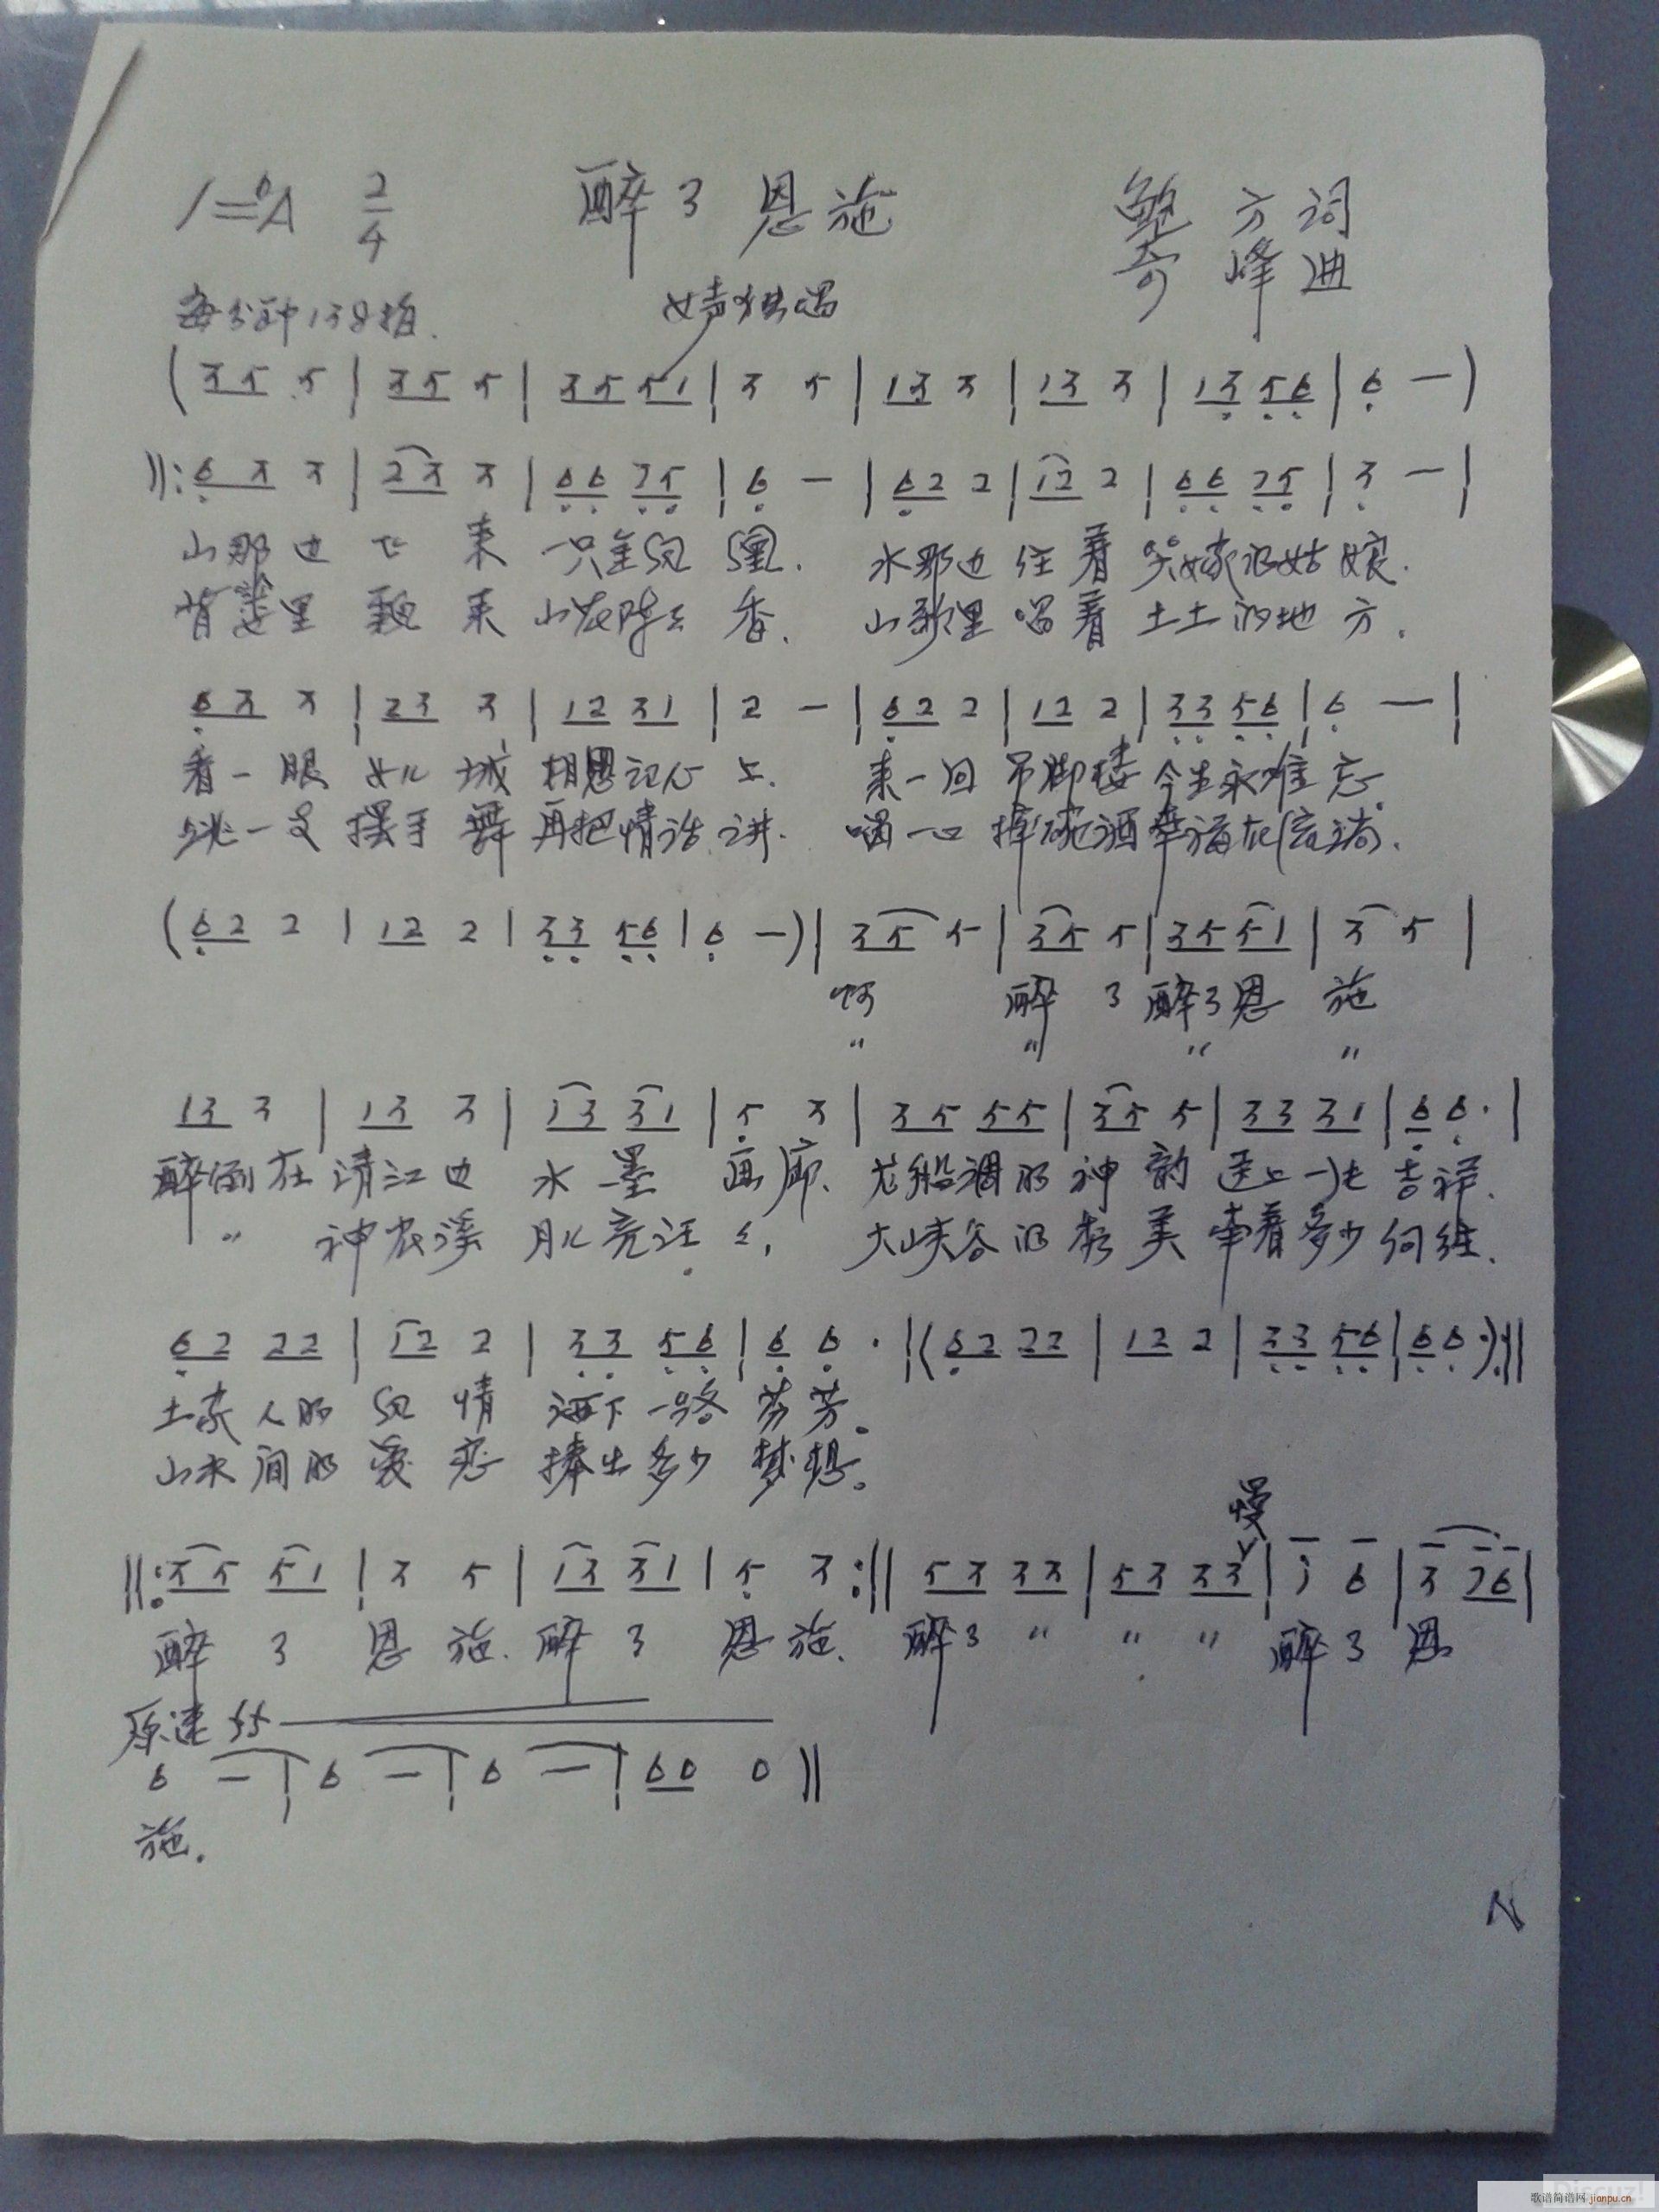 1=bA 2/4 醉了恩施 鲍方词
奇峰曲
每分钟138拍. 女声独唱
(35 5|35 5|35 51|3 5|13 3|13 3|13 56|6 —)
‖:63 3|23 3|66 75|6 —|62 2|12 2|66 75|3 —|
山那边飞来一只金凤凰. 水那边住着哭嫁的姑娘.
背篓里飘来山花阵阵香. 山歌里唱着土土的地方.
63 3|23 3|12 31|2 —|62 2|12 2|33 56|6 —|
看一眼女儿城相思记心上. 来一回吊脚楼今生永难忘.
跳一支摆手舞再把情话讲. 喝一口摔碗酒幸福在流淌.
(62 2|12 2|33 56|6 —)|35 5|35 5|35 51|3 5|
啊 醉了醉了恩施
〃 〃 〃 〃
13 3|13 3|13 31|5 3|35 55|35 5|33 31|6 6·|
醉倒在清江边水墨画廊. 龙船调的神韵送上一生吉祥.
〃 神农溪月儿亮汪汪, 大峡谷的秀美牵着多少向往.
62 22|12 2|33 56|6 6·|(62 22|12 2|33 56|66·):‖
土家人的风情洒下一路芬芳。
山水间的爱恋捧出多少梦想。
慢
‖:35 51|3 5|13 31|5 3:‖53 33|53 33|1 6|3 76|
醉了恩施.醉了恩施. 醉了〃 〃 〃 醉了恩
原速 ff
6 —|6 —|6 —|60 0‖
施.
歌谱简谱网 jianpu.cn
Discuz!